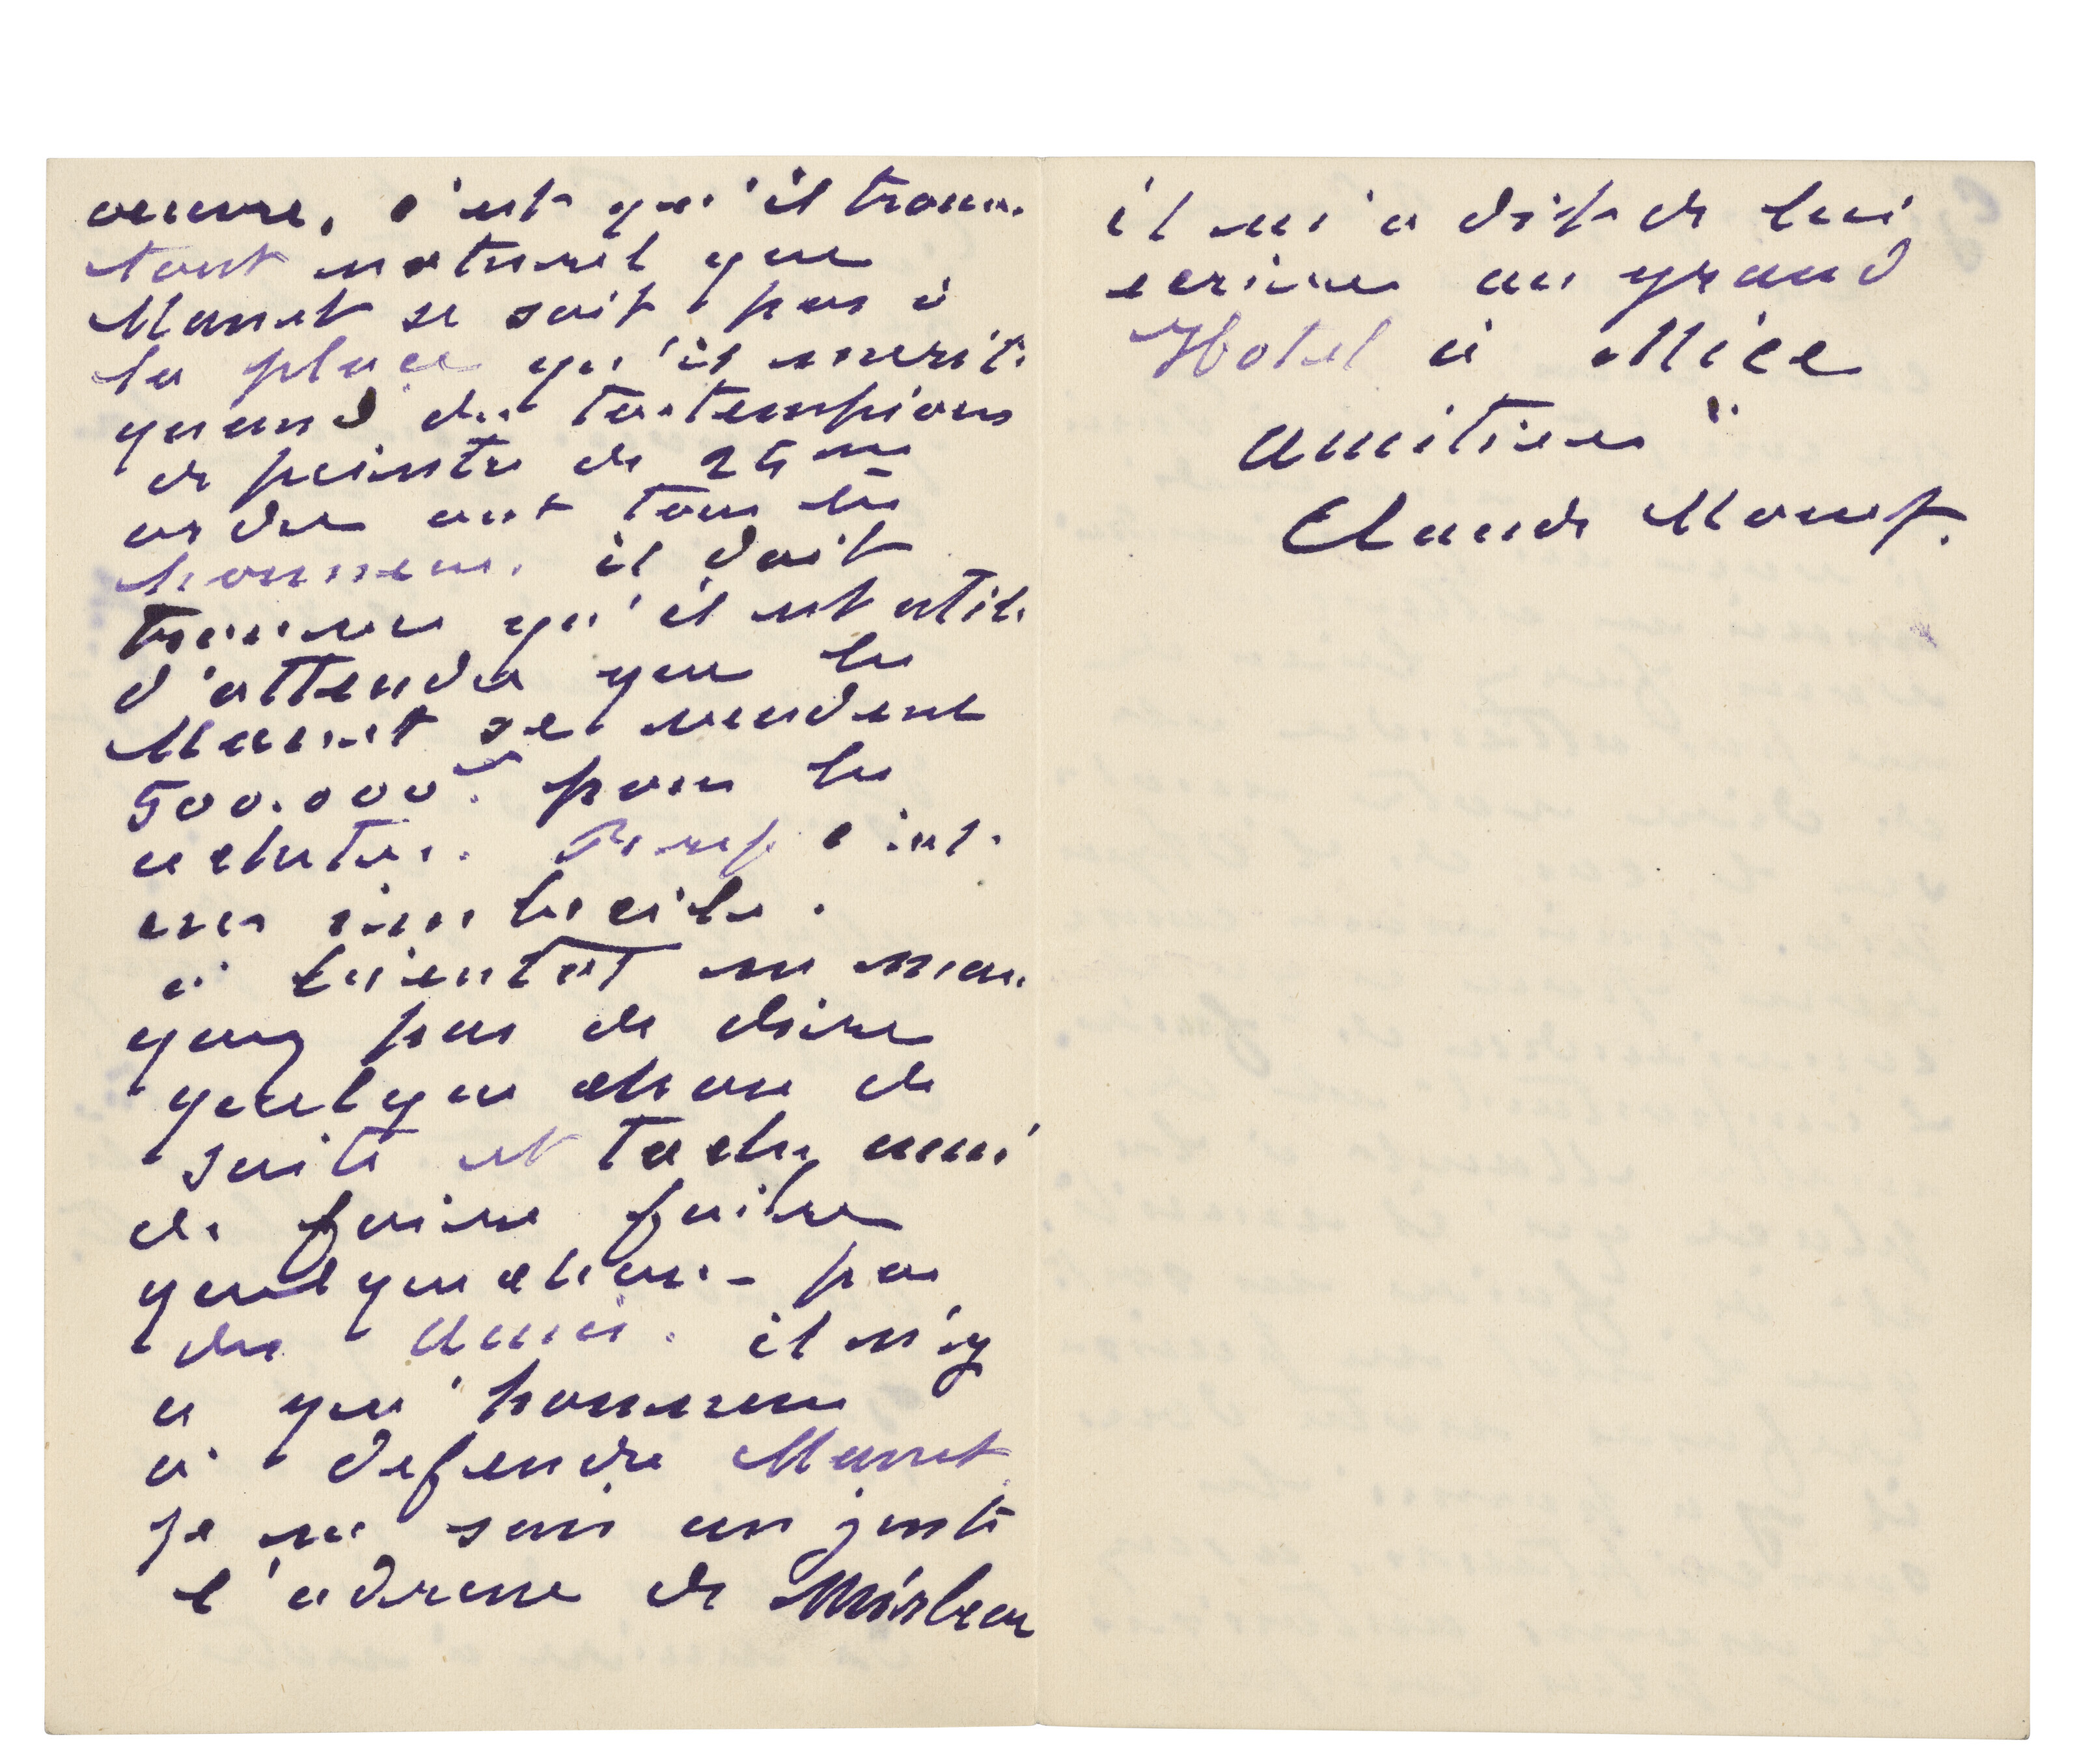 oeuvre, c'est qu'il trouve
tout naturel que
Manet ne soit pas à
la place qu'il mérite
quand des tas tempions
de peintre de 25me
ordre ont tous les
honneurs. il doit
trouver qu'il est utile
d'attendre que les
Manet se vendent
500.000f. pour les
acheter. Bref c'est
un imbecile.
à bientot ne man
quez pas de dire
quelque chose de
suite et tachez aussi
de faire faire
quelque chose - par
des amis. il n'y
a qu'honneur
à defendre Manet
je ne sais au juste
l'adresse de Mirbeau
il m'a dit de lui
ecrire au grand
Hotel à Nice
amitiés
Claude Monet.